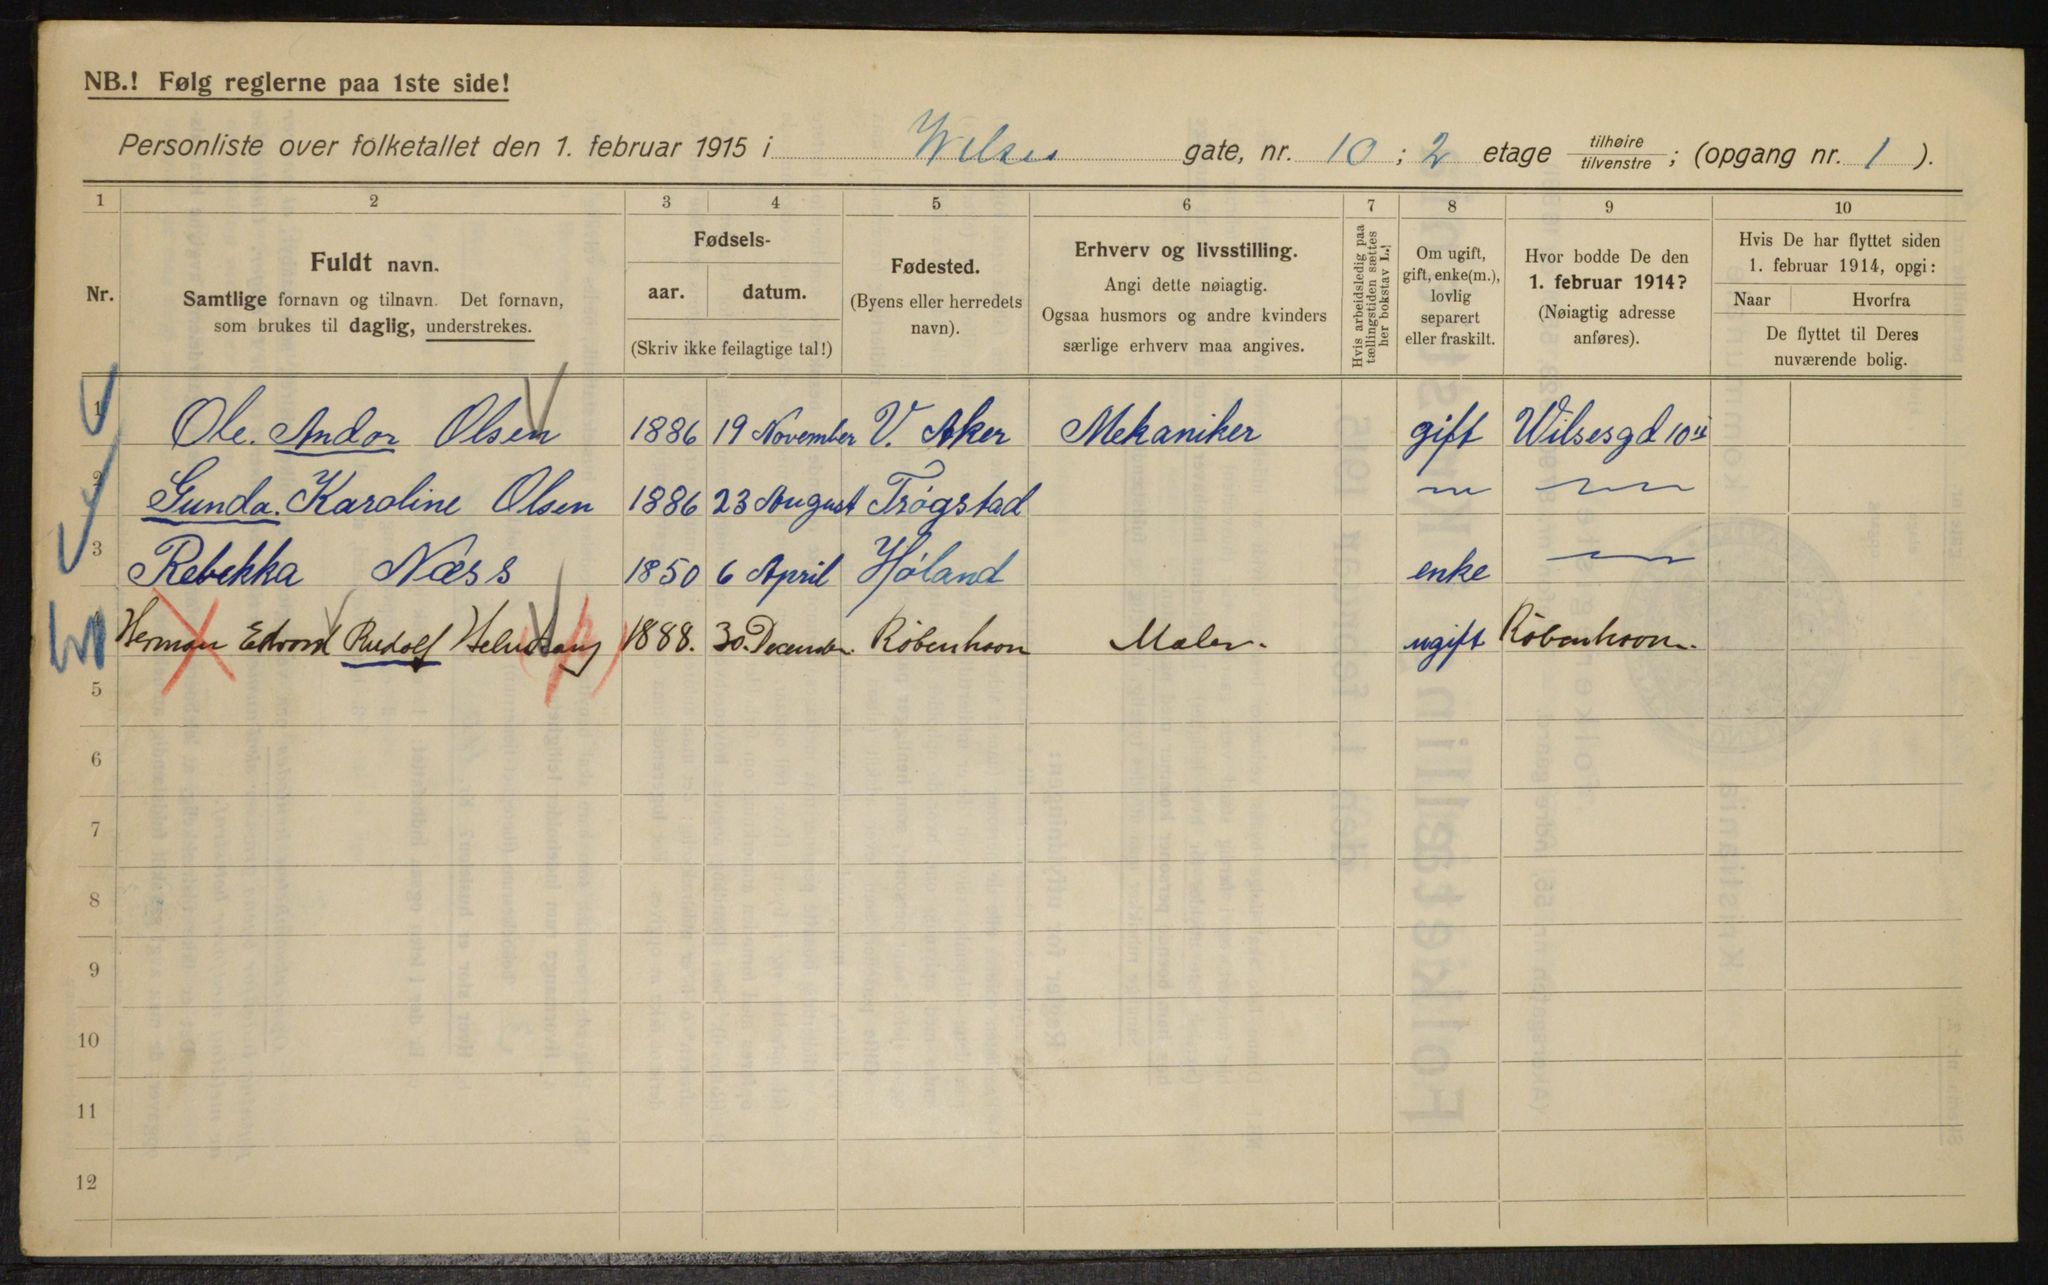 NB.! Følg reglerne paa 1ste side!
Personliste over folketallet den 1. februar 1915 i Wilses gate, nr. 10 ; 2 etage tilhøire tilvenstre ; (opgang nr. 1 ).
1 2 3 4 5 6 7 8 9 10
Nr.
Fuldt navn.
Samtlige fornavn og tilnavn. Det fornavn,
som brukes til daglig, understrekes.
Fødsels-
aar. datum.
(Skriv ikke feilagtige tal!)
Fødested.
(Byens eller herredets
navn).
Erhverv og livsstilling.
Angi dette nøiagtig.
Ogsaa husmors og andre kvinders
særlige erhverv maa angives.
Hvis arbeidsledig paa
tællingstiden sættes
her bokstav L.!
Om ugift,
gift, enke(m.),
lovlig
separert
eller fraskilt.
Hvor bodde De den
1. februar 1914?
(Nøiagtig adresse
anføres).
Hvis De har flyttet siden
1. februar 1914, opgi:
Naar Hvorfra
De flyttet til Deres
nuværende bolig.
1 Ole. Andor Olsen 1886 19 November V. Aker Mekaniker gift Wilsesgd 10
2 Gunda. Karoline Olsen 1886 23 August Trøgstad
3 Rebekka Næss 1850 6 April Høland enke
4 Herman Edvard Rudolf 1888. 30. December. København Maler. ugift København.
5
6
7
8
9
10
11
12